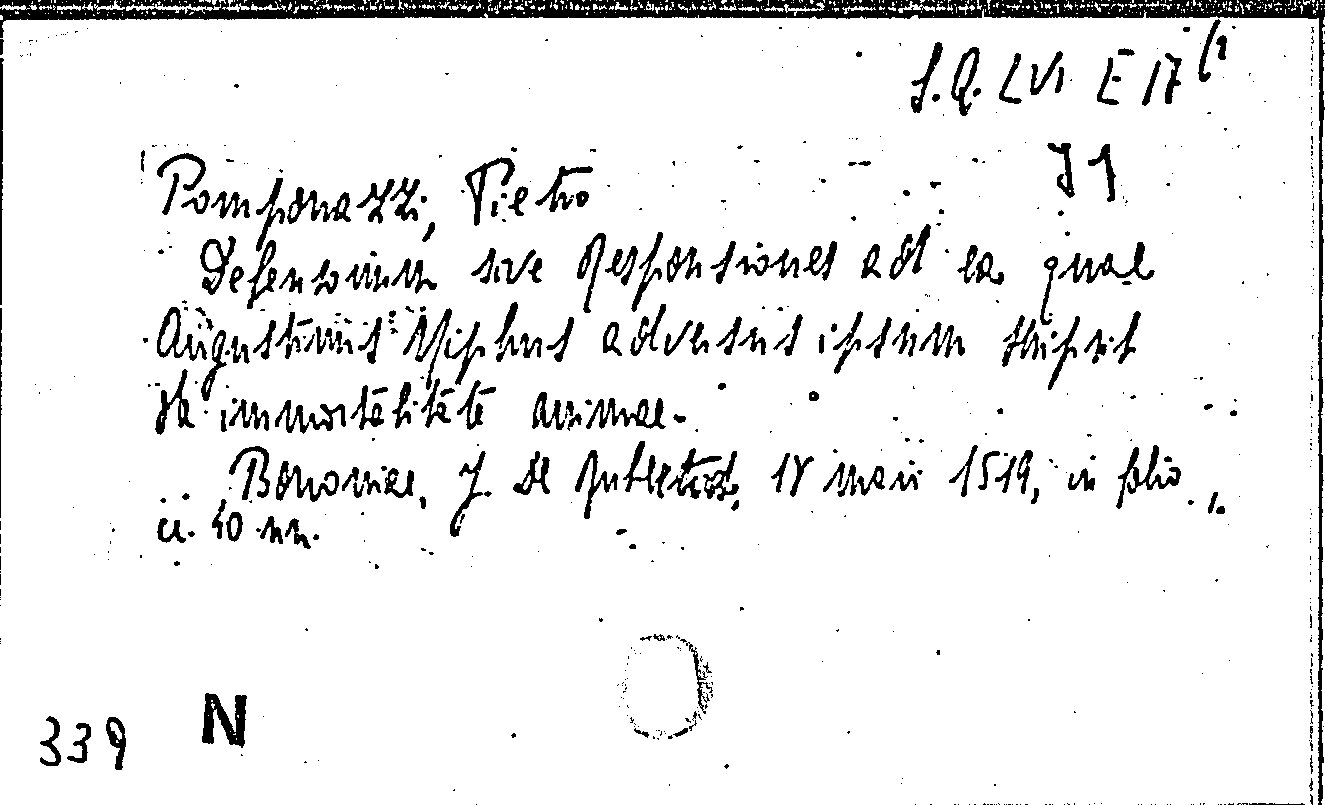 S.Q. LVI E 17 (2
J 1
Pomponazzi, Pietro
Defensorium sive Responsiones ad ea quae
Augustinus Niphus adversus ipsum scripsit
de immortalitate animae.
Bononiae, J. de Rubeis, 18 maii 1519, in folio
cc. 40 nn.
339 N